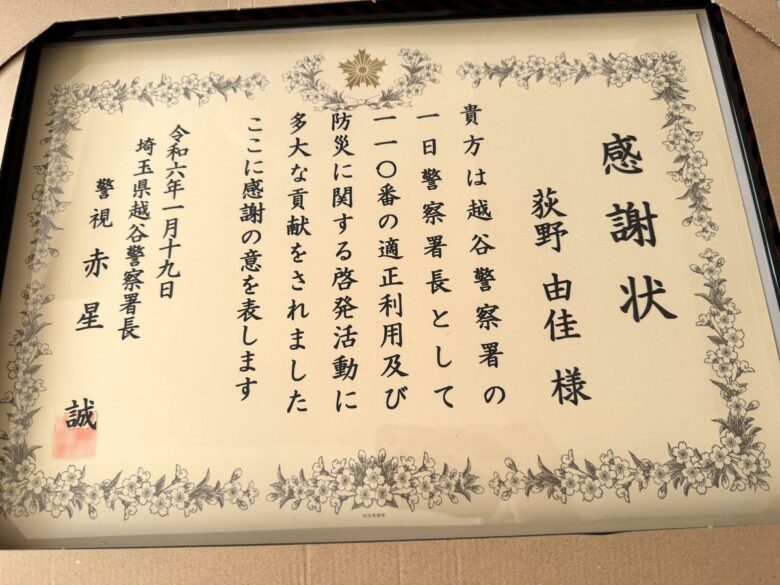 感謝状
荻野由佳様
貴方は越谷警察署の
一日警察署長として
一一〇番の適正利用及び
防災に関する啓発活動に
多大な貢献をされました
ここに感謝の意を表します
令和六年一月十九日
埼玉県越谷警察署長
警視 赤星 誠